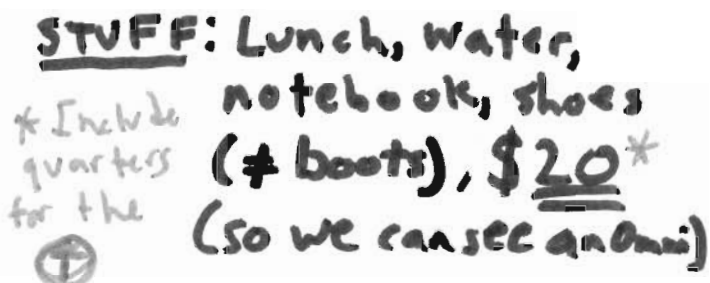 STUFF: Lunch, water,
notebook, shoes
(≠ boots), $20*
(so we can see an Omni)
* Include
quarters
for the
Ⓣ